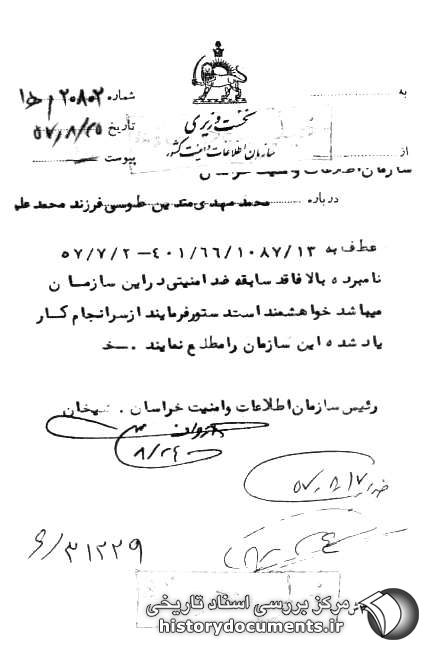 به
شماره ۲۰۸۰۲
نخست وزیری
تاریخ ۵۷/۸/۲۵
سازمان اطلاعات و امنیت کشور
از
پیوست
سازمان اطلاعات و امنیت خراسان
درباره محمد مهدی متدین طوسی فرزند محمد علی
عطف به ۱۰۸۷/۱۳/۴۰۱/۶۶–۵۷/۷/۲
نامبرده بالا فاقد سابقه ضد امنیتی در این سازمان
میباشد خواهشمند است دستور فرمایند از سرانجام کار
یاد شده این سازمان را مطلع نمایند . خ
رئیس سازمان اطلاعات و امنیت خراسان . شیخان
۸/۲۴
۵۷/۸/۱۷
۳۱۲۲۹/
مرکز بررسی اسناد تاریخی
historydocuments.ir